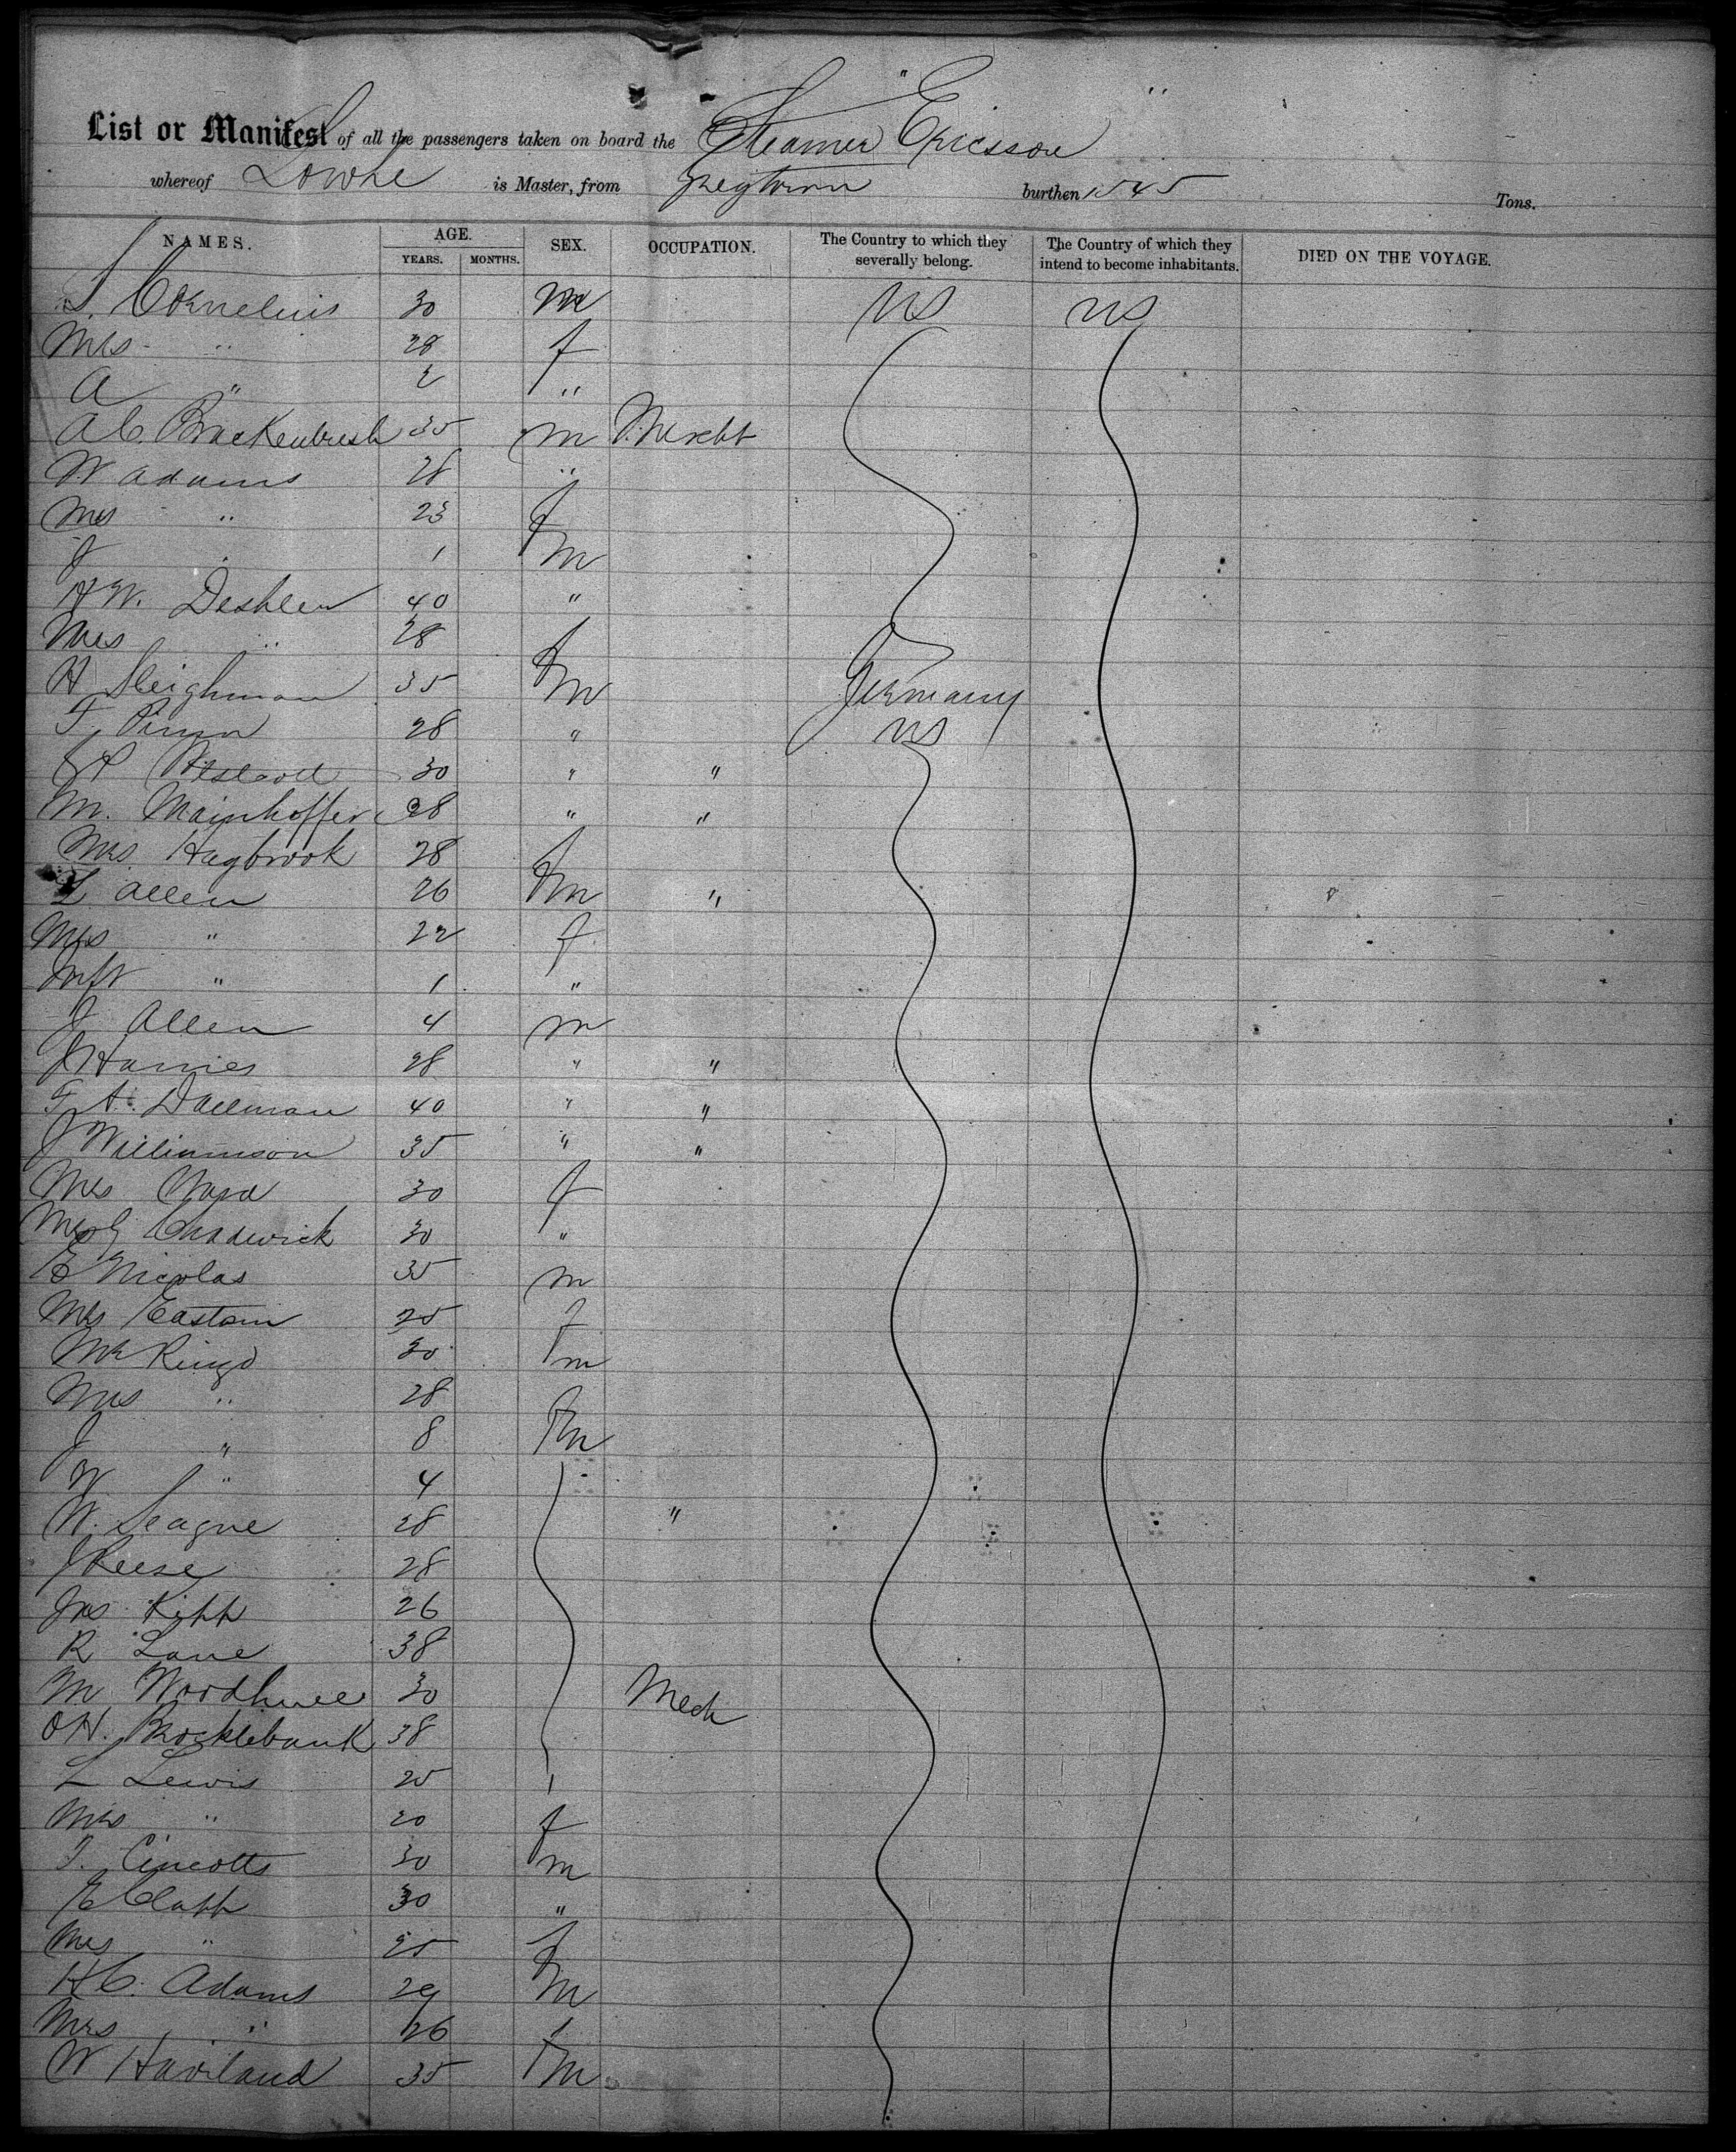 List or Manifest of all the passengers taken on board the Steamer "Ericsson"
whereof Lowre is Master, from Greytown burthen 1545 Tons.
NAMES. AGE. YEARS. MONTHS. SEX. OCCUPATION. The Country to which they severally belong. The Country of which they intend to become inhabitants. DIED ON THE VOYAGE.
S. Cornelius 30 m US US
Mrs " 28 f
A " 2 "
A C. Brackenbush 35 m Mercht
W Adams 28 "
Mrs " 23 f
J " 1 m
H W. Deshler 40 "
Mrs " 28 f
H Sleighman 35 m Germany
F. 28 " US
30 " "
M. Mainhoffer 28 " "
Mrs Haybrook 28 f
L Allen 26 m "
Mrs " 22 f
Inft " 1 "
J Allen 4 m
J Harries 28 " "
F A. Dallman 40 " "
J Williamson 35 " "
Mrs 30 f
Mrs G Chadwick 30 "
E Nicolas 35 m
Mrs Eastom 25 f
Mr Ringo 30 m
Mrs " 28 f
J " 8 m
W " 4
W. Seagne 28 "
J Reese 28
Jas Kipp 26
R Lane 38
M Woodhull 30 Mech
O H. Brocklebank 38
L Lewis 25
Mrs " 20 f
T. Cincotts 30 m
E Clapp 30 "
Mrs " 25 f
H C. Adams 29 m
Mrs " 26 f
W Haviland 35 m